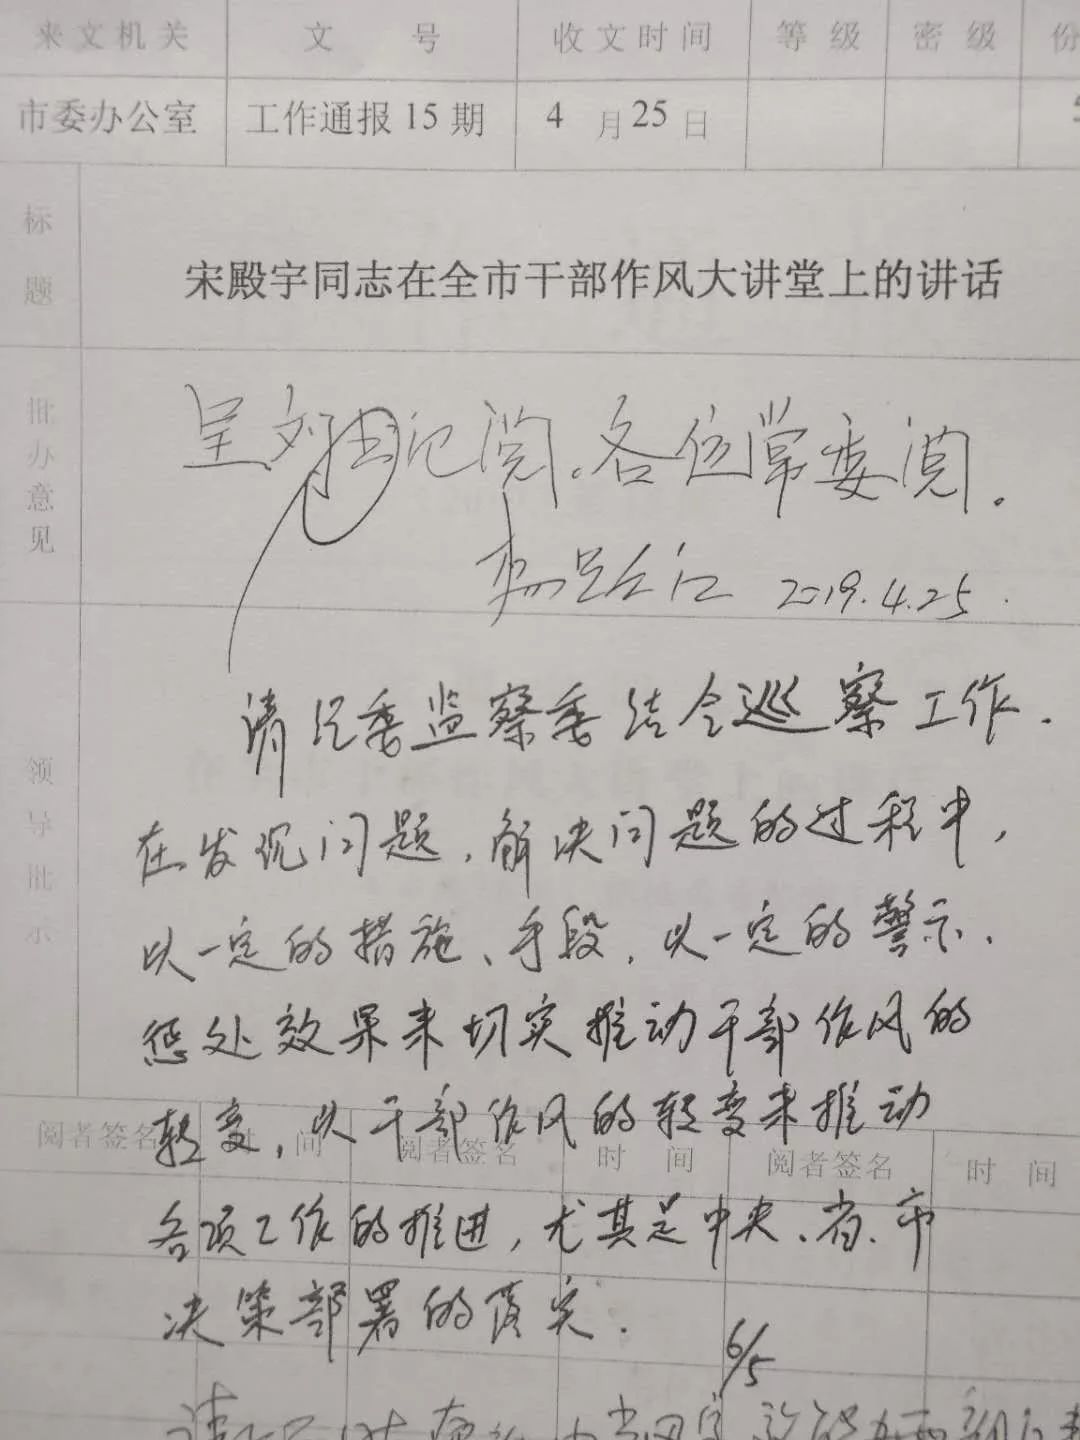 来文机关 文号 收文时间 等级 密级 份
市委办公室 工作通报15期 4月25日
标题
宋殿宇同志在全市干部作风大讲堂上的讲话
批办意见
呈刘书记阅、各位常委阅。
2019.4.25.
领导批示
请纪委监察委结合巡察工作.
在发现问题,解决问题的过程中,
以一定的措施、手段,以一定的警示、
惩处效果来切实推动干部作风的
转变,以干部作风的转变来推动
阅者签名 时间 阅者签名 时间 阅者签名 时间
各项工作的推进,尤其是中央、省、市
决策部署的落实.
6/5